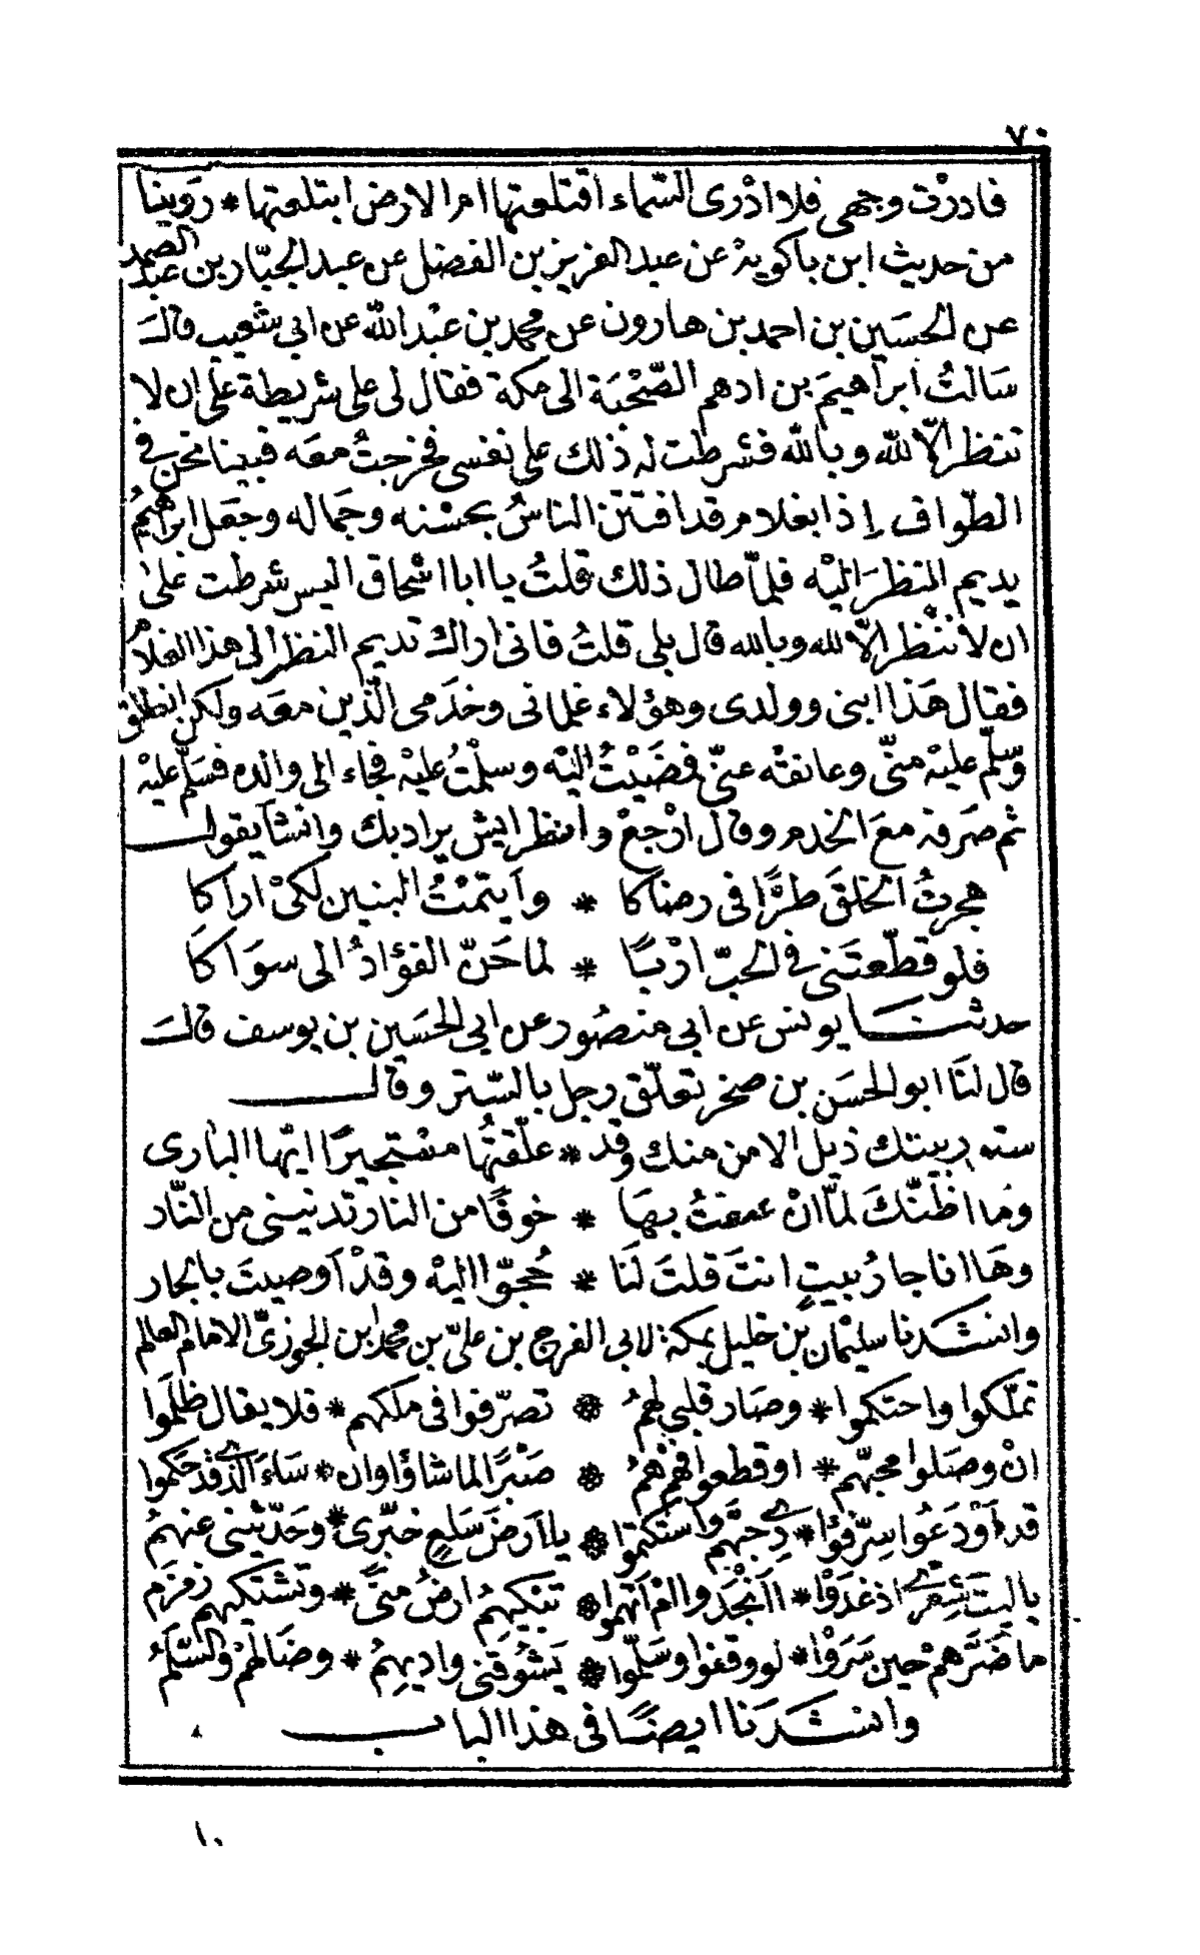 ٧٠
فادرت وجهى فلا ادْرى السّماء اقتلعتها ام الارض ابتلعتها * رَوينا
من حديث ابن باكويهْ عن عبد العزيز بن الفضل عن عبد الجبّار بن عبد الصمد
عن الحسَين بن احمد بن هارون عن محمد بن عبْد اللّه عن ابى شعيب قالَ
سَالتُ ابراهيمَ بن ادهم الصّحْبَة الى مكة فقال لى على شريطة على ان لا
تنظر الّا للّه وباللّه فشرطت له ذلك على نفسى فخرجتُ معَه فبينا نحن فى
الطّواف إذا بغلام قد افتتن الناسُ بحسْنه وجَماله وجعَل ابراهيمُ
يديم النظرَ اليْه فلمّا طال ذلك قلتُ يا ابا اسْحاق اليس شرطت علىَّ
ان لا ننْظر الّا للّه وباللّه قال بلى قلتُ فانى اراك تديم النظر الى هذا الغلام
فقال هَذا ابنى وولدى وهؤلاء غلمانى وخدَمى الّذين معَه ولكن انطلق
وسلّم عليْه منّى وعانقْه عنّى فمضَيْتُ اليْه وسلمْتُ عليْه فجاء الى والده فسَلّم عليْه
ثم صَرفه معَ الخدم وقال ارْجعْ وانظر ايش يراد بك وانشأ يقول
هجرتُ الخلقَ طرًّا فى رضاكا * وأيتمْتُ البنين لكىْ اراكا
فلو قطّعتَنى فى الحبّ ارْبًا * لما حَنّ الفؤادُ الى سوَاكا
حدثنا يونس عن ابى منصُور عن ابى الحسَين بن يوسف قالَ
قال لنَا ابو الحسَن بن صخر تعلّق رجل بالستر وقال
ستور بيتك ذيل الامن منك وقد * علّقتُها مسْتجيرًا ايّها البارى
ومَا اظنّكَ لمّا انْ علقتُ بهَا * خوفًا من النار تدنينى من النّار
وهَا انا جارُ بيتٍ انتَ قلتَ لنَا * حُجّوا اليْه وقدْ اَوصيتَ بالجار
وانشَدنا سليمان بن خليل بمكة لابى الفرج بن علىّ بن محمد ابن الجوزىّ الامام العالم
تملّكوا واحتكموا * وصَار قلبى لهمُ * تصرّفوا فى ملكهم * فلا يقال ظلَموا
انْ وصَلوا محبّهم * او قطعوا فهمْ همُ * صَبْرًا لما شاؤا وان * سَاءَ الّذى قد حَكموا
قد اَوْدَعُوا سِرّ فؤا * دى حبّهم واستكتموا * يا اَرضَ سَلعٍ خبّرى * وحَدّثينى عنهمُ
يا ليتَ شِعْرى اذ غدَوْا * اَانْجَدوا ام اَتهموا * تبْكيهمُ ارضُ منًى * وتشتكيهم زمزَم
ما ضَرّهمْ حين سَرَوْا * لو وقفوا وسَلّموا * يَشُوقنى واديهمُ * وضَالهمْ والسّلَمُ
وانشَدَنا ايضًا فى هذا الباب
١٠